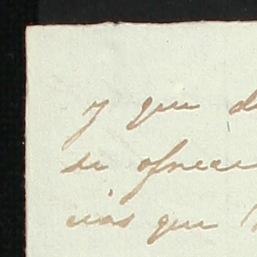 y que d
se ofrece
cias que